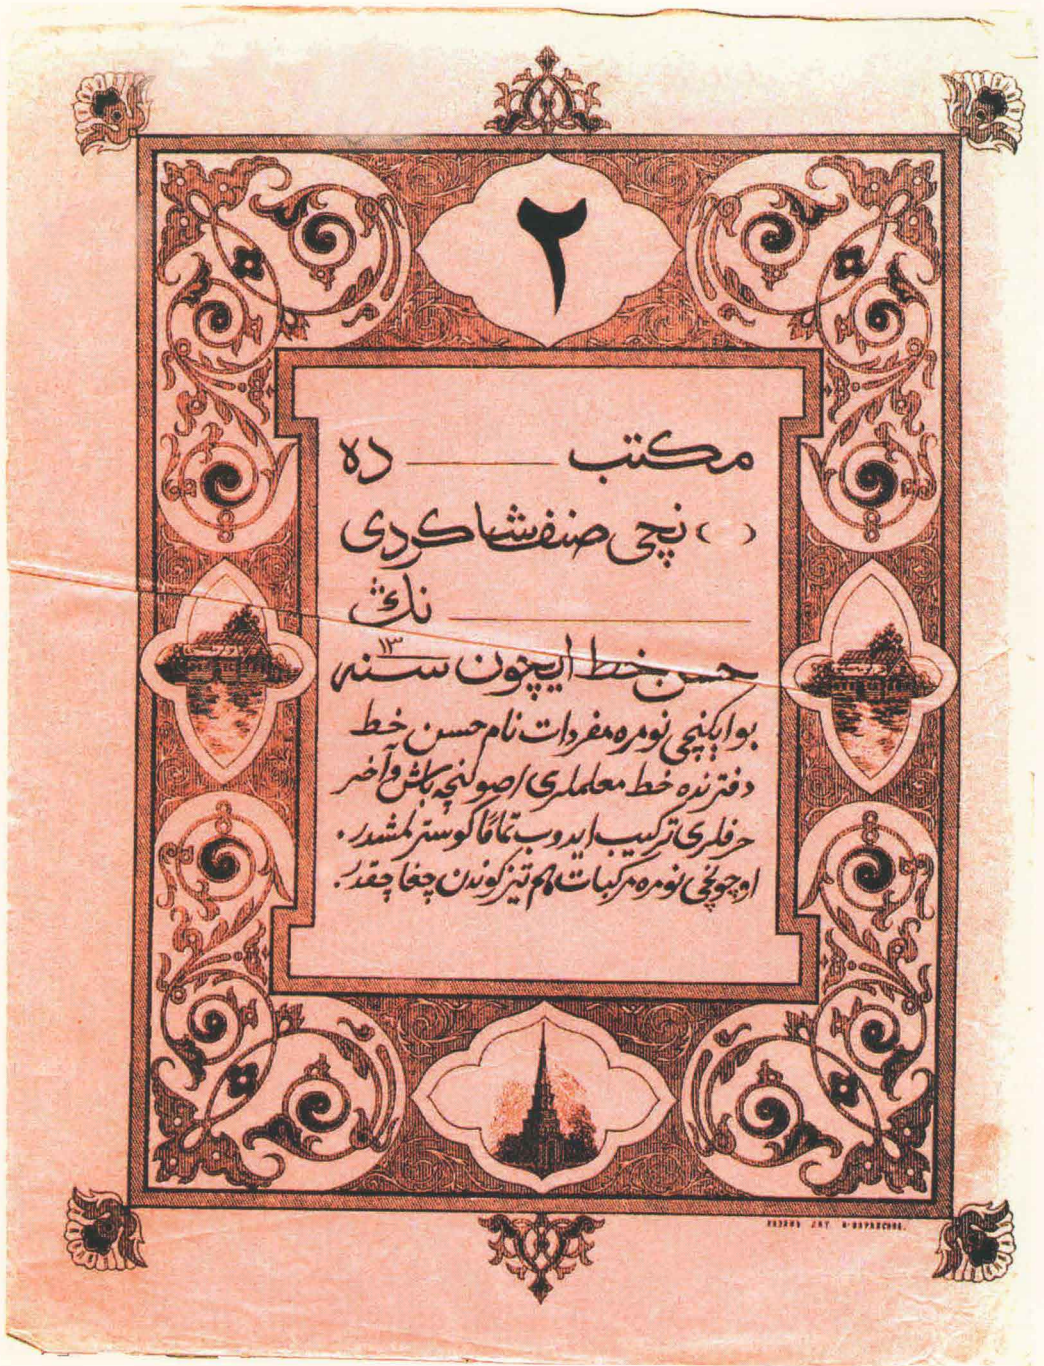 ٢
مكتب ــــــ ده
( ) نچی صنف شاكردی
ــــــــــــ نڭ
حسن خط ایچون سنه ١٣
بو ایكنچی نومره مفردات نام حسن خط
دفترنده خط معلملری اصولنچه باش و آخر
حرفلری تركیب ایدوب تماماً كوسترلمشدر.
اوچونچی نومره مركبات هم تیز كوندن چغاچقدر.